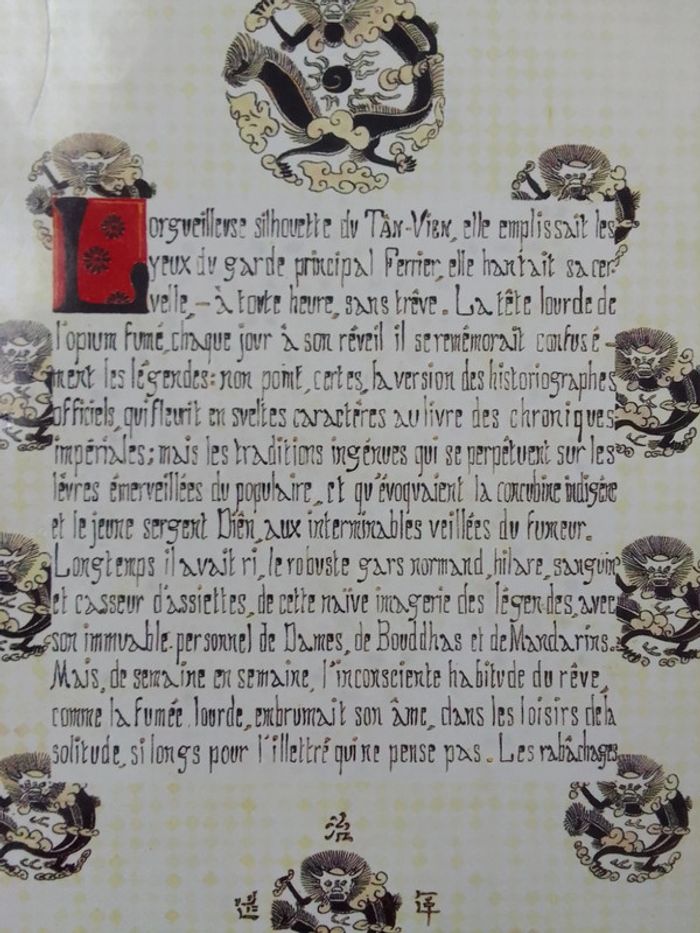 Lorgueilleuse silhouette du TÂN-VIEN, elle emplissait les
yeux du garde principal Ferrier, elle hantait sa cer-
velle, – à toute heure, sans trêve. La tête lourde de
l'opium fumé, chaque jour à son réveil il se remémorait confusé-
ment les légendes: non point, certes, la version des historiographes
officiels, qui fleurit en sveltes caractères au livre des chroniques
impériales; mais les traditions ingénues qui se perpétuent sur les
lèvres émerveillées du populaire, et qu'évoquaient la concubine indigène
et le jeune sergent Diên, aux interminables veillées du fumeur.
Longtemps il avait ri, le robuste gars normand, hilare, sanguin
et casseur d'assiettes, de cette naïve imagerie des légendes, avec
son immuable personnel de Dames, de Bouddhas et de Mandarins.
Mais, de semaine en semaine, l'inconsciente habitude du rêve,
comme la fumée lourde, embrumait son âme, dans les loisirs de la
solitude, si longs pour l'illettré qui ne pense pas. Les rabâchages